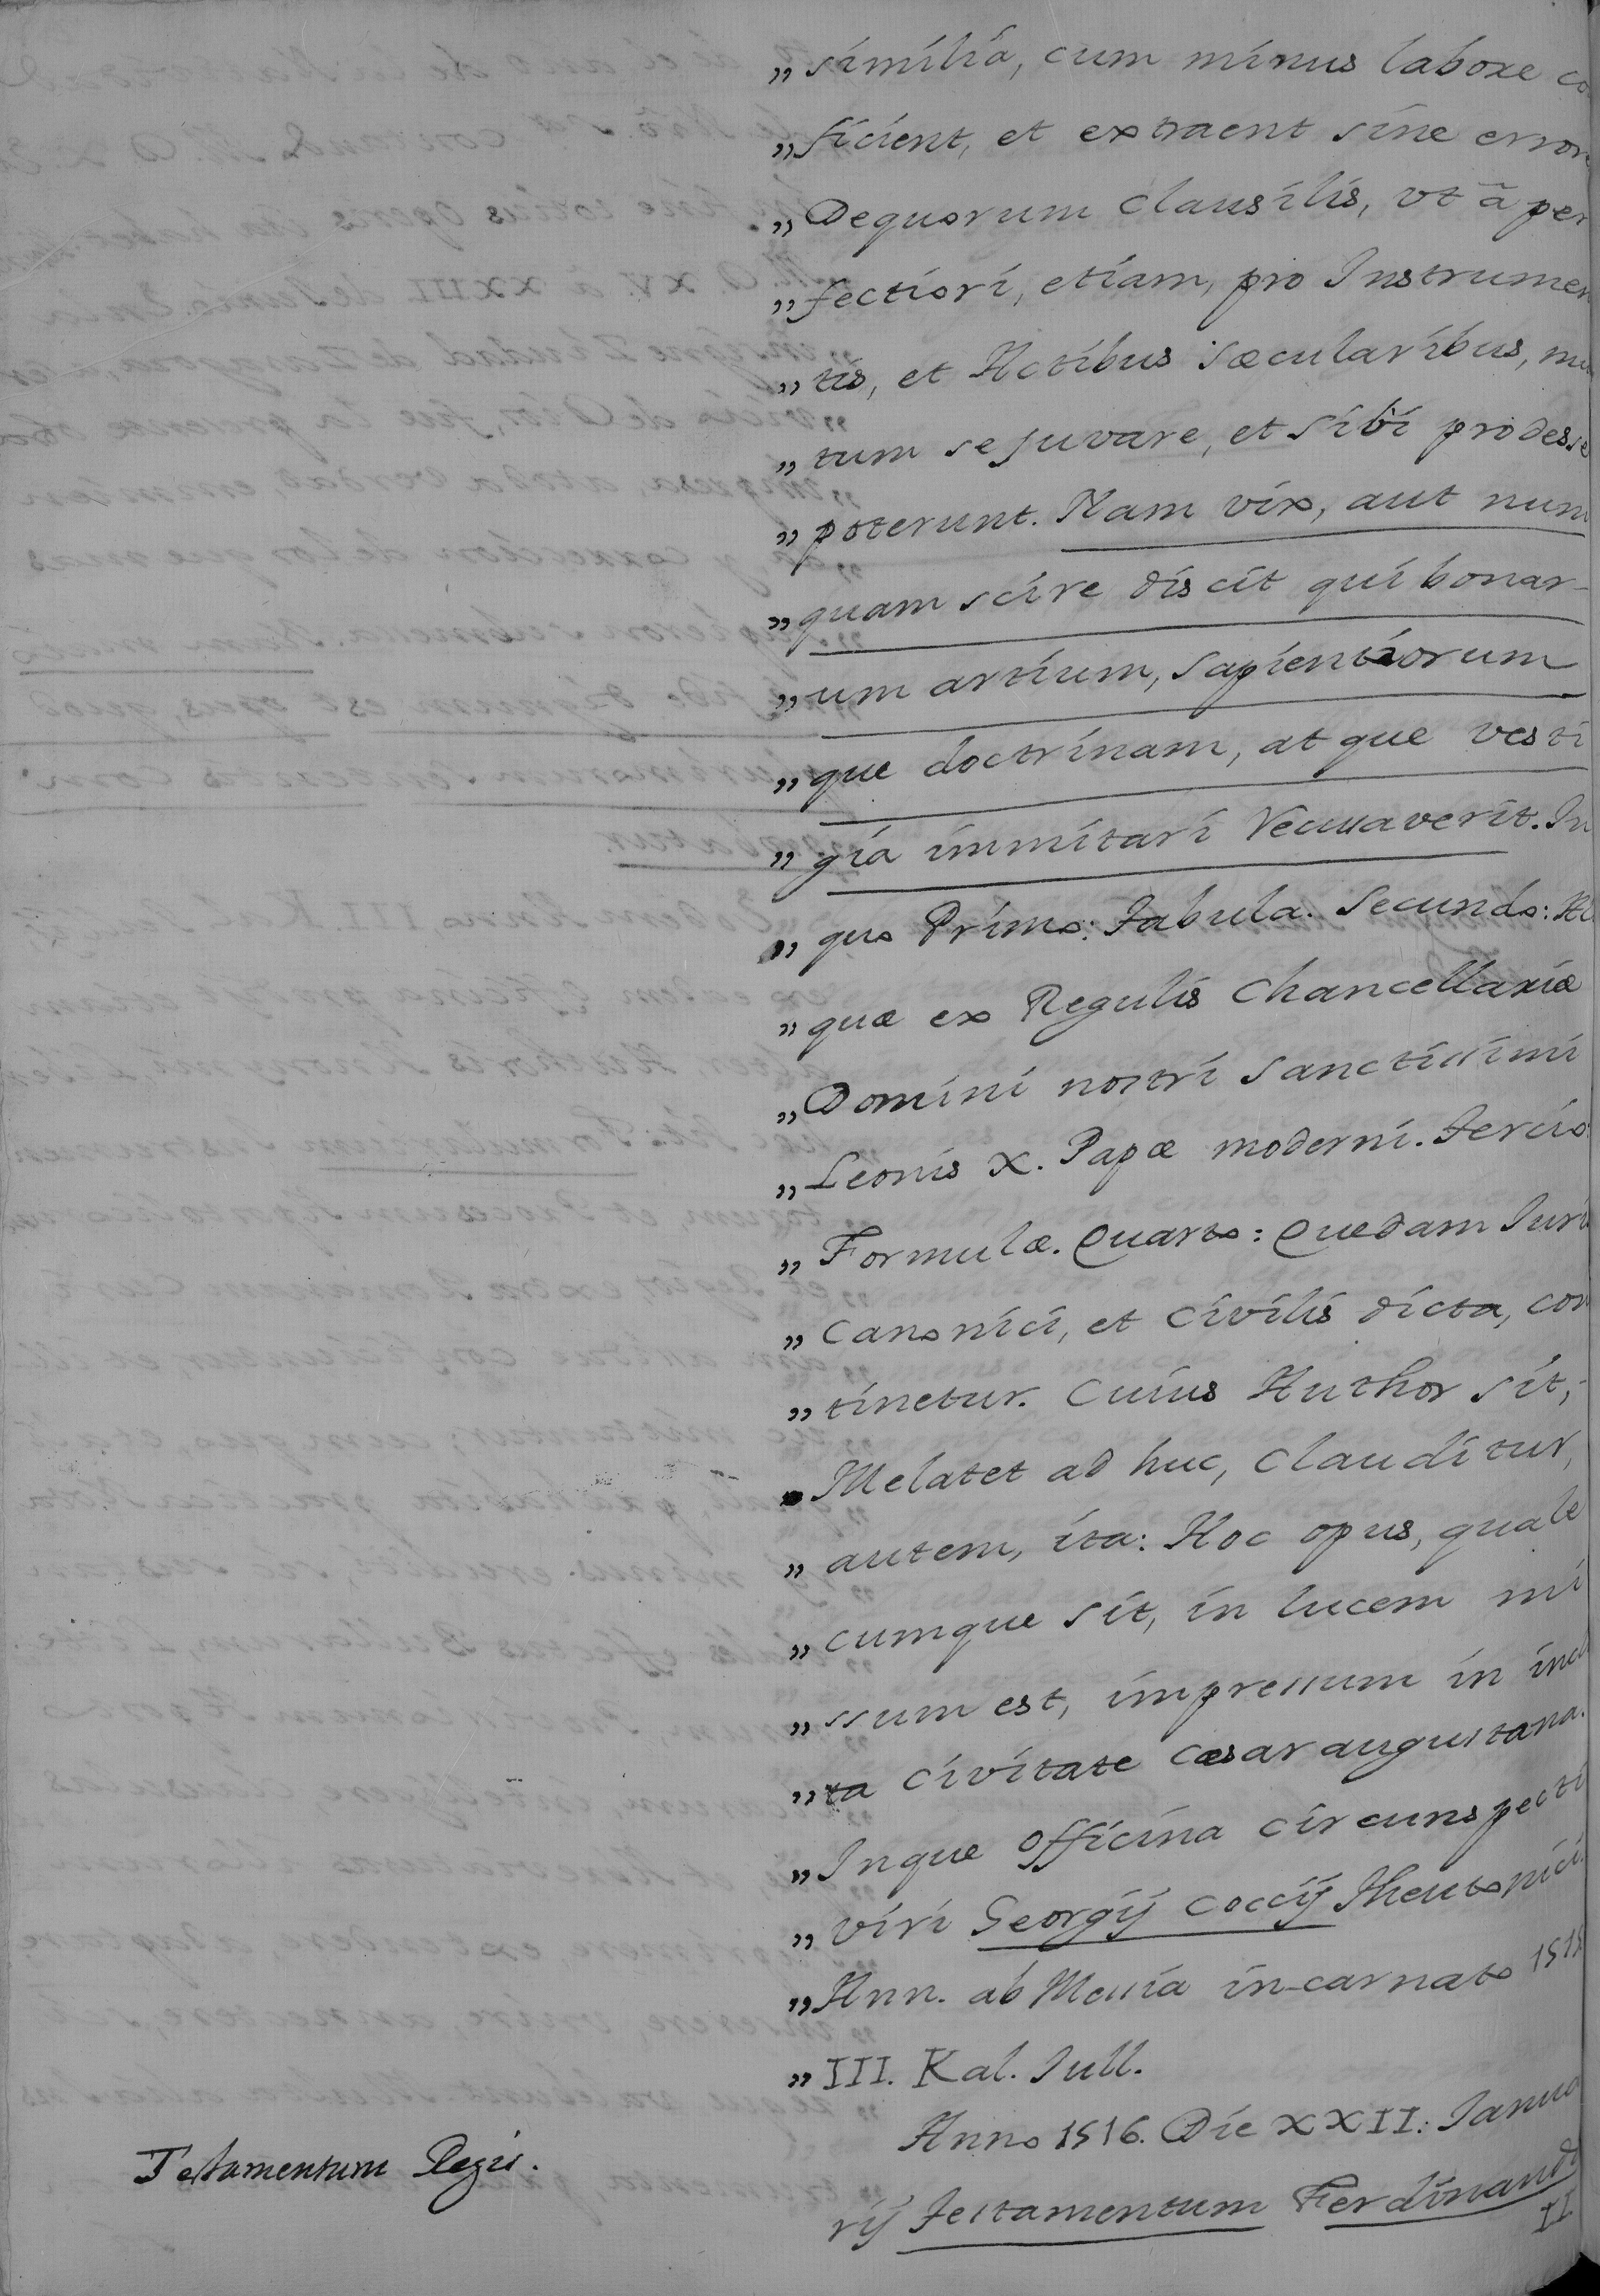 „similia, cum minus labore co
„ficient, et extraent sine errore
„Dequorum clausilis, vt ã per
„fectiori, etiam, pro Instrumen
„tis, et Actibus sæcularibus, mu
„tum se juvare, et sibi prodesse
„poterunt. Nam vix, aut num
„quam scire discit qui bonar-
„um artium, sapientiorum
„que doctrinam, at que vesti
„gia immitari Recusaverit. In
„quo Primo: Tabula. Secundo:
„quæ ex Regulis Chancellariæ
„Domini nostri sanctissimi
„Leonis X. Papæ moderni. Tercio
„Formulæ. Quarto: Quedam Juri
„Canonici, et Civilis dicta, con
„tinetur. Cuius Author sit,
„Melatet ad huc, Clauditur,
„autem, ita: Hoc opus, quale
„cumque sit, in lucem mi
„ssum est, impressum in incli
„ta Civitate Cæsaraugustana.
„Inque Officina circunspecti
„viri Georgij Coccij Theutonici.
„Ann. ab Messia in-carnato 1515
„III. Kal. Jull.
Anno 1516. Die XXII: Janua
Testamentum Regis.
rij Testamentum Ferdinandi
II